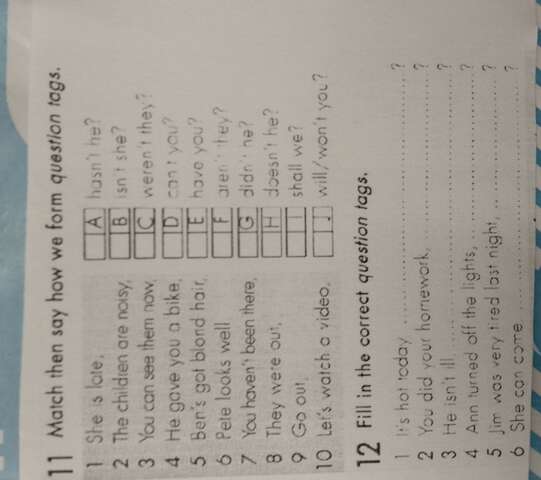 11 Match then say how we form question tags.
1 She is late,
2 The children are noisy,
3 You can see them now,
4 He gave you a bike,
5 Ben's got blond hair,
6 Pete looks well
7 You haven't been there,
8 They were out,
9 Go out,
10 Let's watch a video,
A hasn't he?
B isn't she?
C weren't they?
D can't you?
E have you?
F aren't they?
G didn't he?
H doesn't he?
I shall we?
J will/won't you?
12 Fill in the correct question tags.
1 It's hot today ?
2 You did your homework, ?
3 He isn't ill ?
4 Ann turned off the lights, ?
5 Jim was very tired last night, ?
6 She can come ?